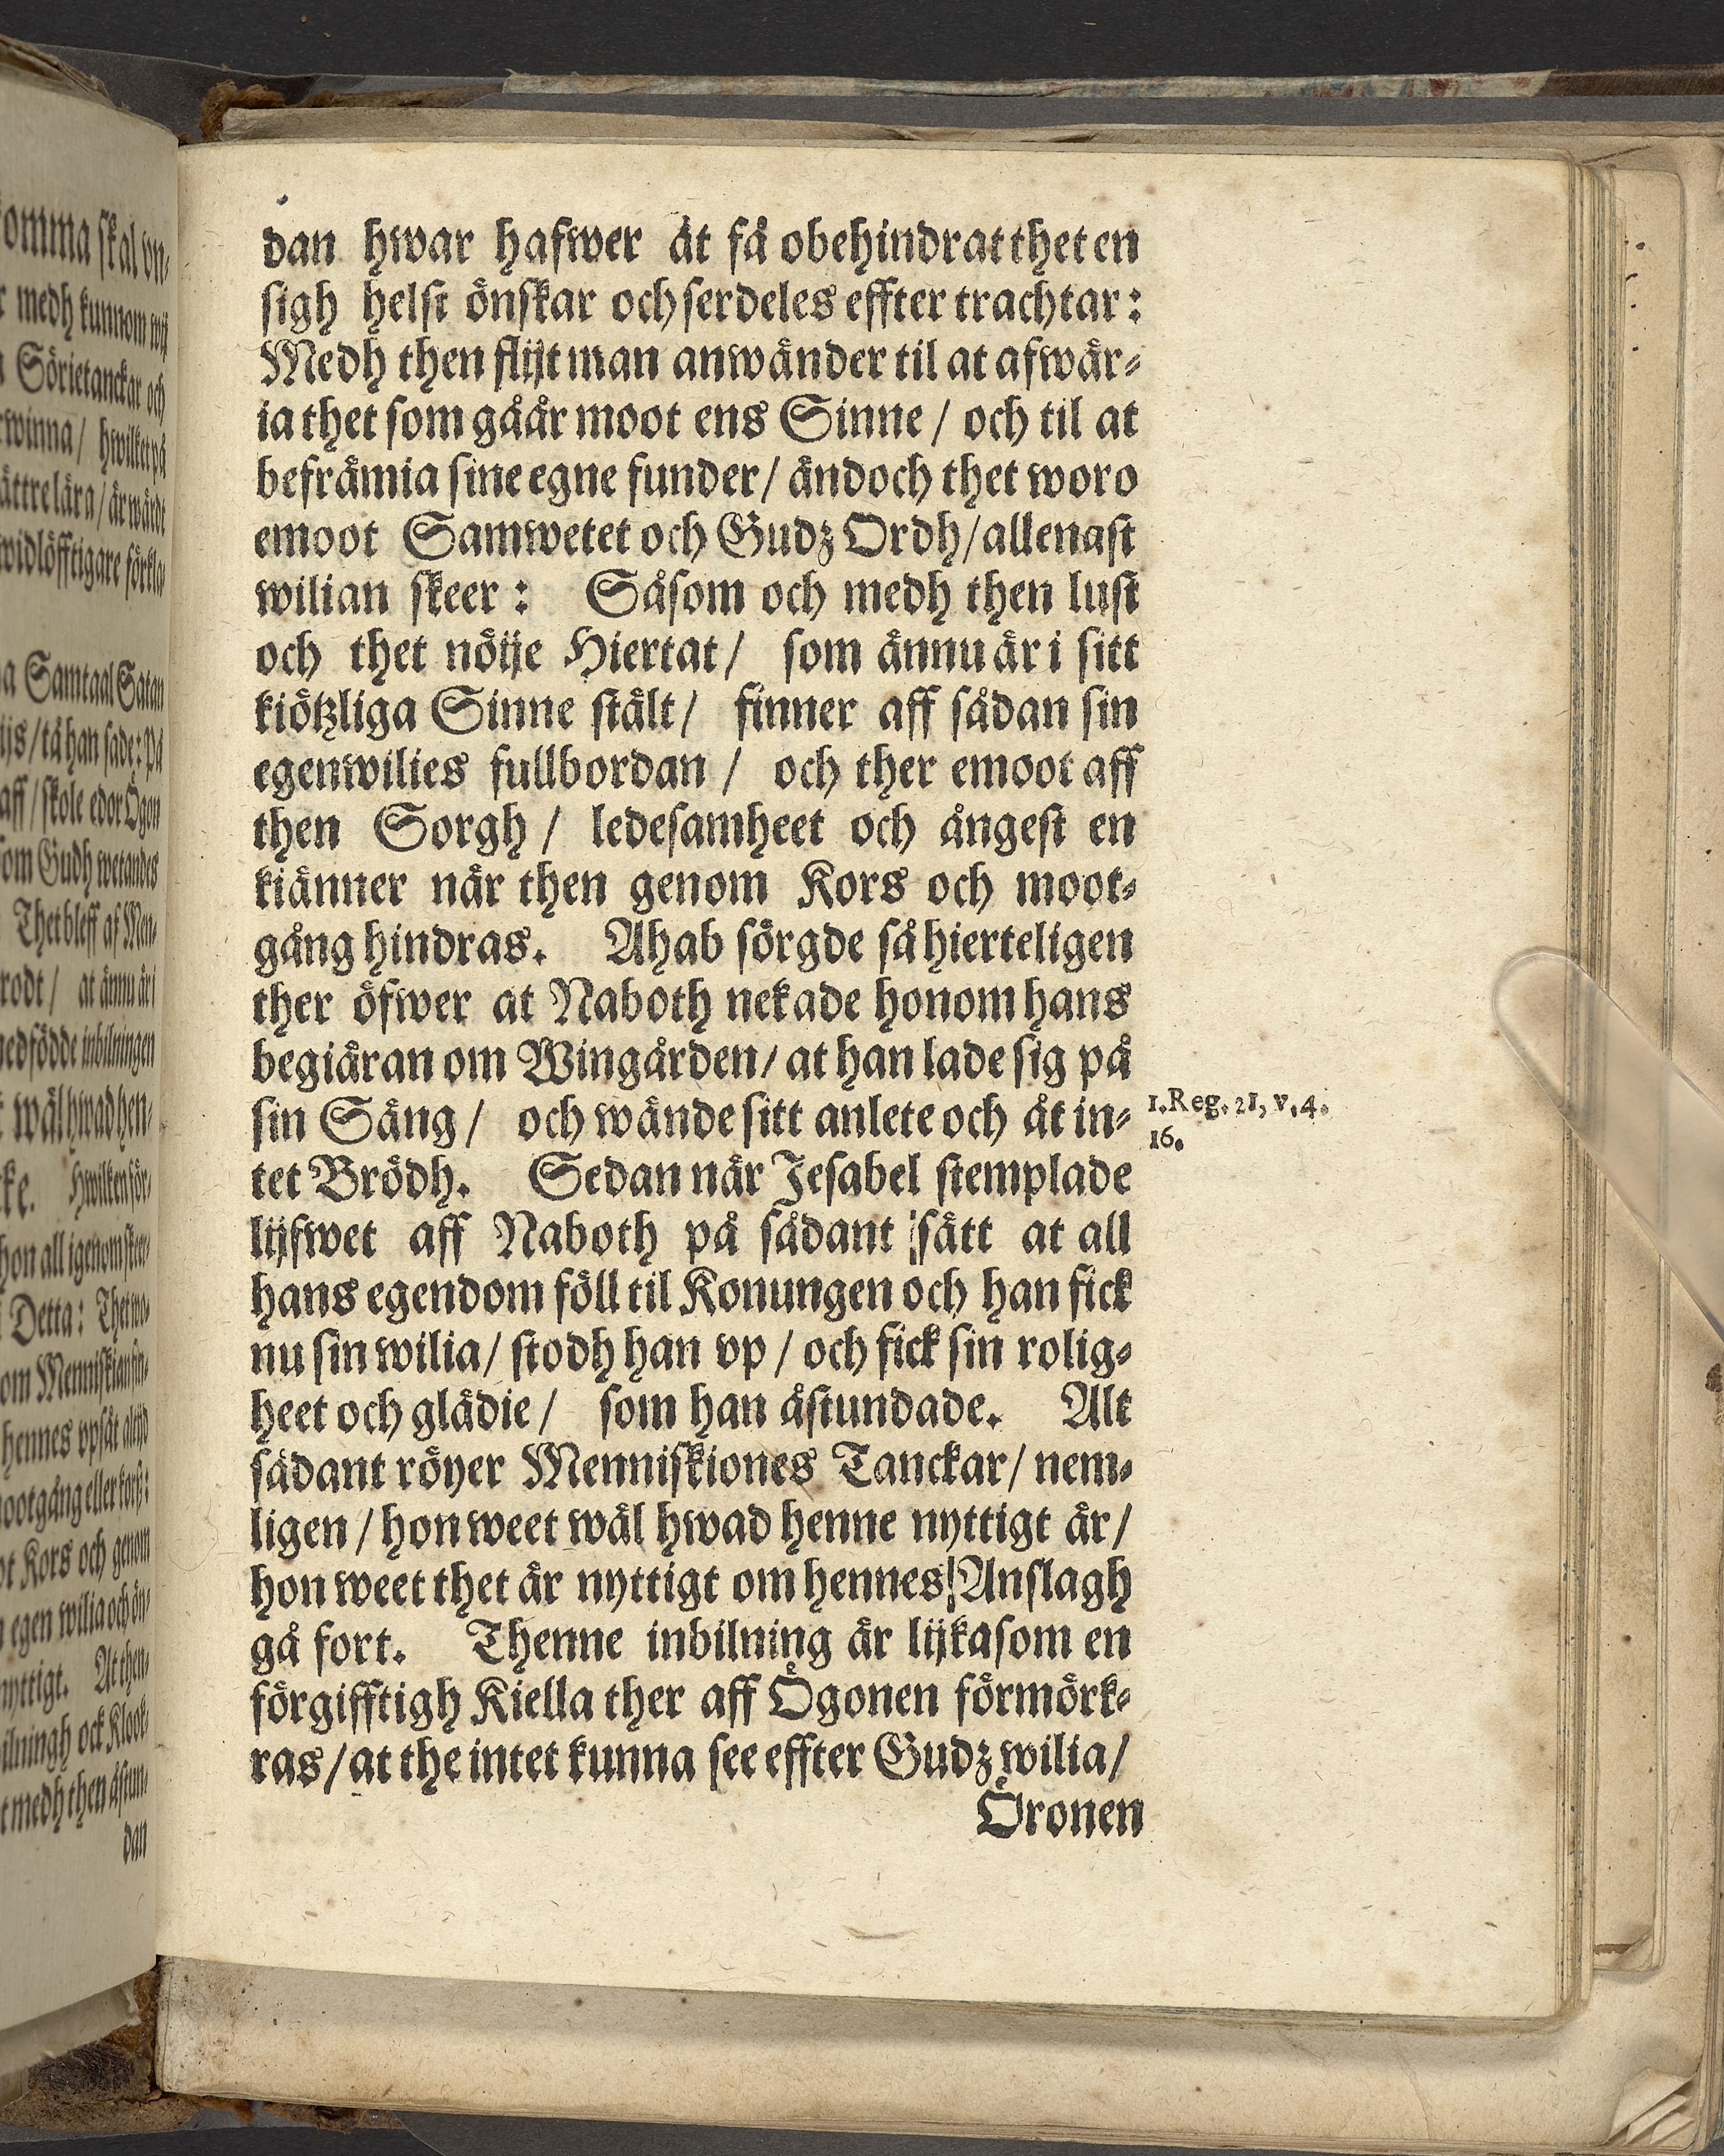 dan hwar hafwer åt få obehindrat thet en
sigh helst önskar och serdeles effter trachtar:
Medh then flijt man anwänder til at afwär-
ia thet som gåår moot ens Sinne / och til at
befrämia sine egne funder / ändoch thet woro
emoot Samwetet och Gudz Ordh / allenast
wilian skeer: Såsom och medh then lust
och thet nöije Hiertat / som ännu är i sitt
kiötzliga Sinne stält / finner aff sådan sin
egenwilies fullbordan / och ther emoot aff
then Sorgh / ledesamheet och ångest en
kiänner när then genom Kors och moot-
gång hindras. Ahab sörgde så hierteligen
ther öfwer at Naboth nekade honom hans
begiäran om Wingården / at han lade sig på
sin Säng / och wände sitt anlete och åt in-
1. Reg. 21, v. 4.
16.
tet Brödh. Sedan när Jesabel stemplade
lijfwet aff Naboth på sådant sätt at all
hans egendom föll til Konungen och han fick
nu sin wilia / stodh han vp / och fick sin rolig-
heet och glädie / som han åstundade. Alt
sådant röyer Menniskiones Tanckar / nem-
ligen / hon weet wäl hwad henne nyttigt är /
hon weet thet är nyttigt om hennes Anslagh
gå fort. Thenne inbilning är lijkasom en
förgifftigh Kiella ther aff Ögonen förmörk-
ras / at the intet kunna see effter Gudz wilia /
Öronen